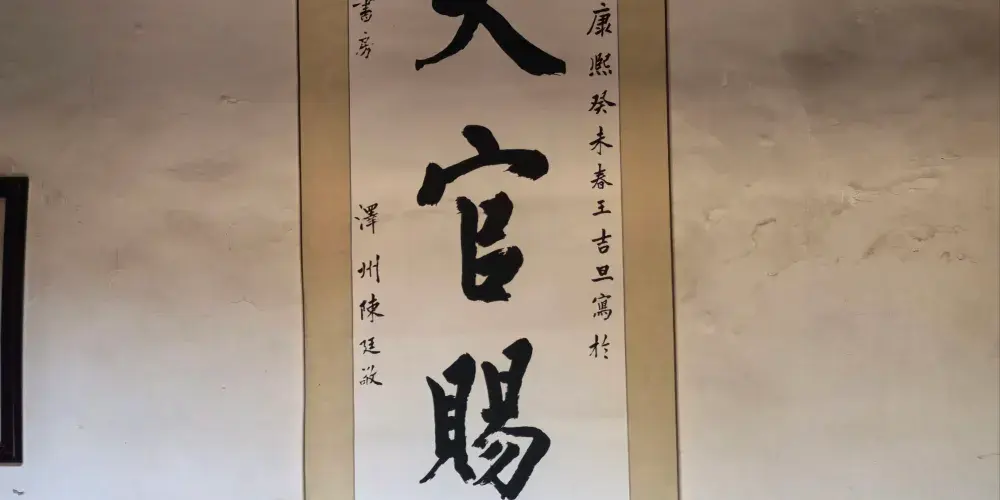 康熙癸未春王吉旦寫於
天官賜
書房
澤州陳廷敬